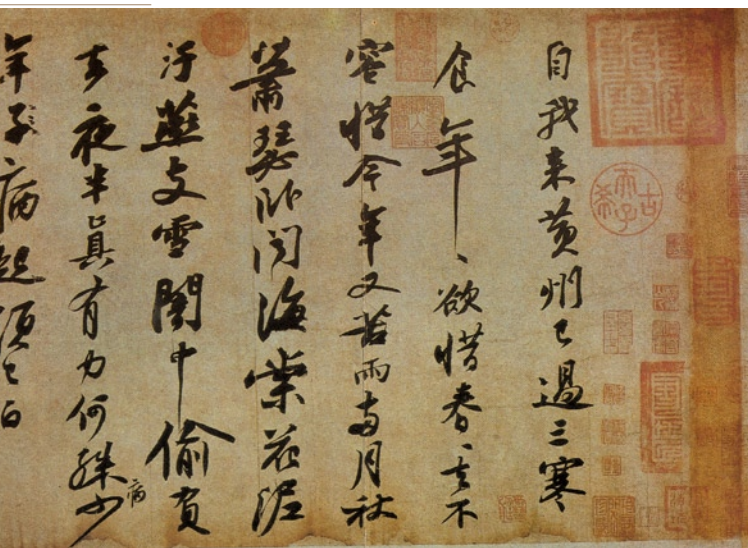 自我来黄州已過三寒
食年、欲惜春、去不
容惜今年又苦雨兩月秋
蕭瑟卧聞海棠花泥
汙燕支雪闇中偷負
去夜半真有力何殊少病
年子病起須已白